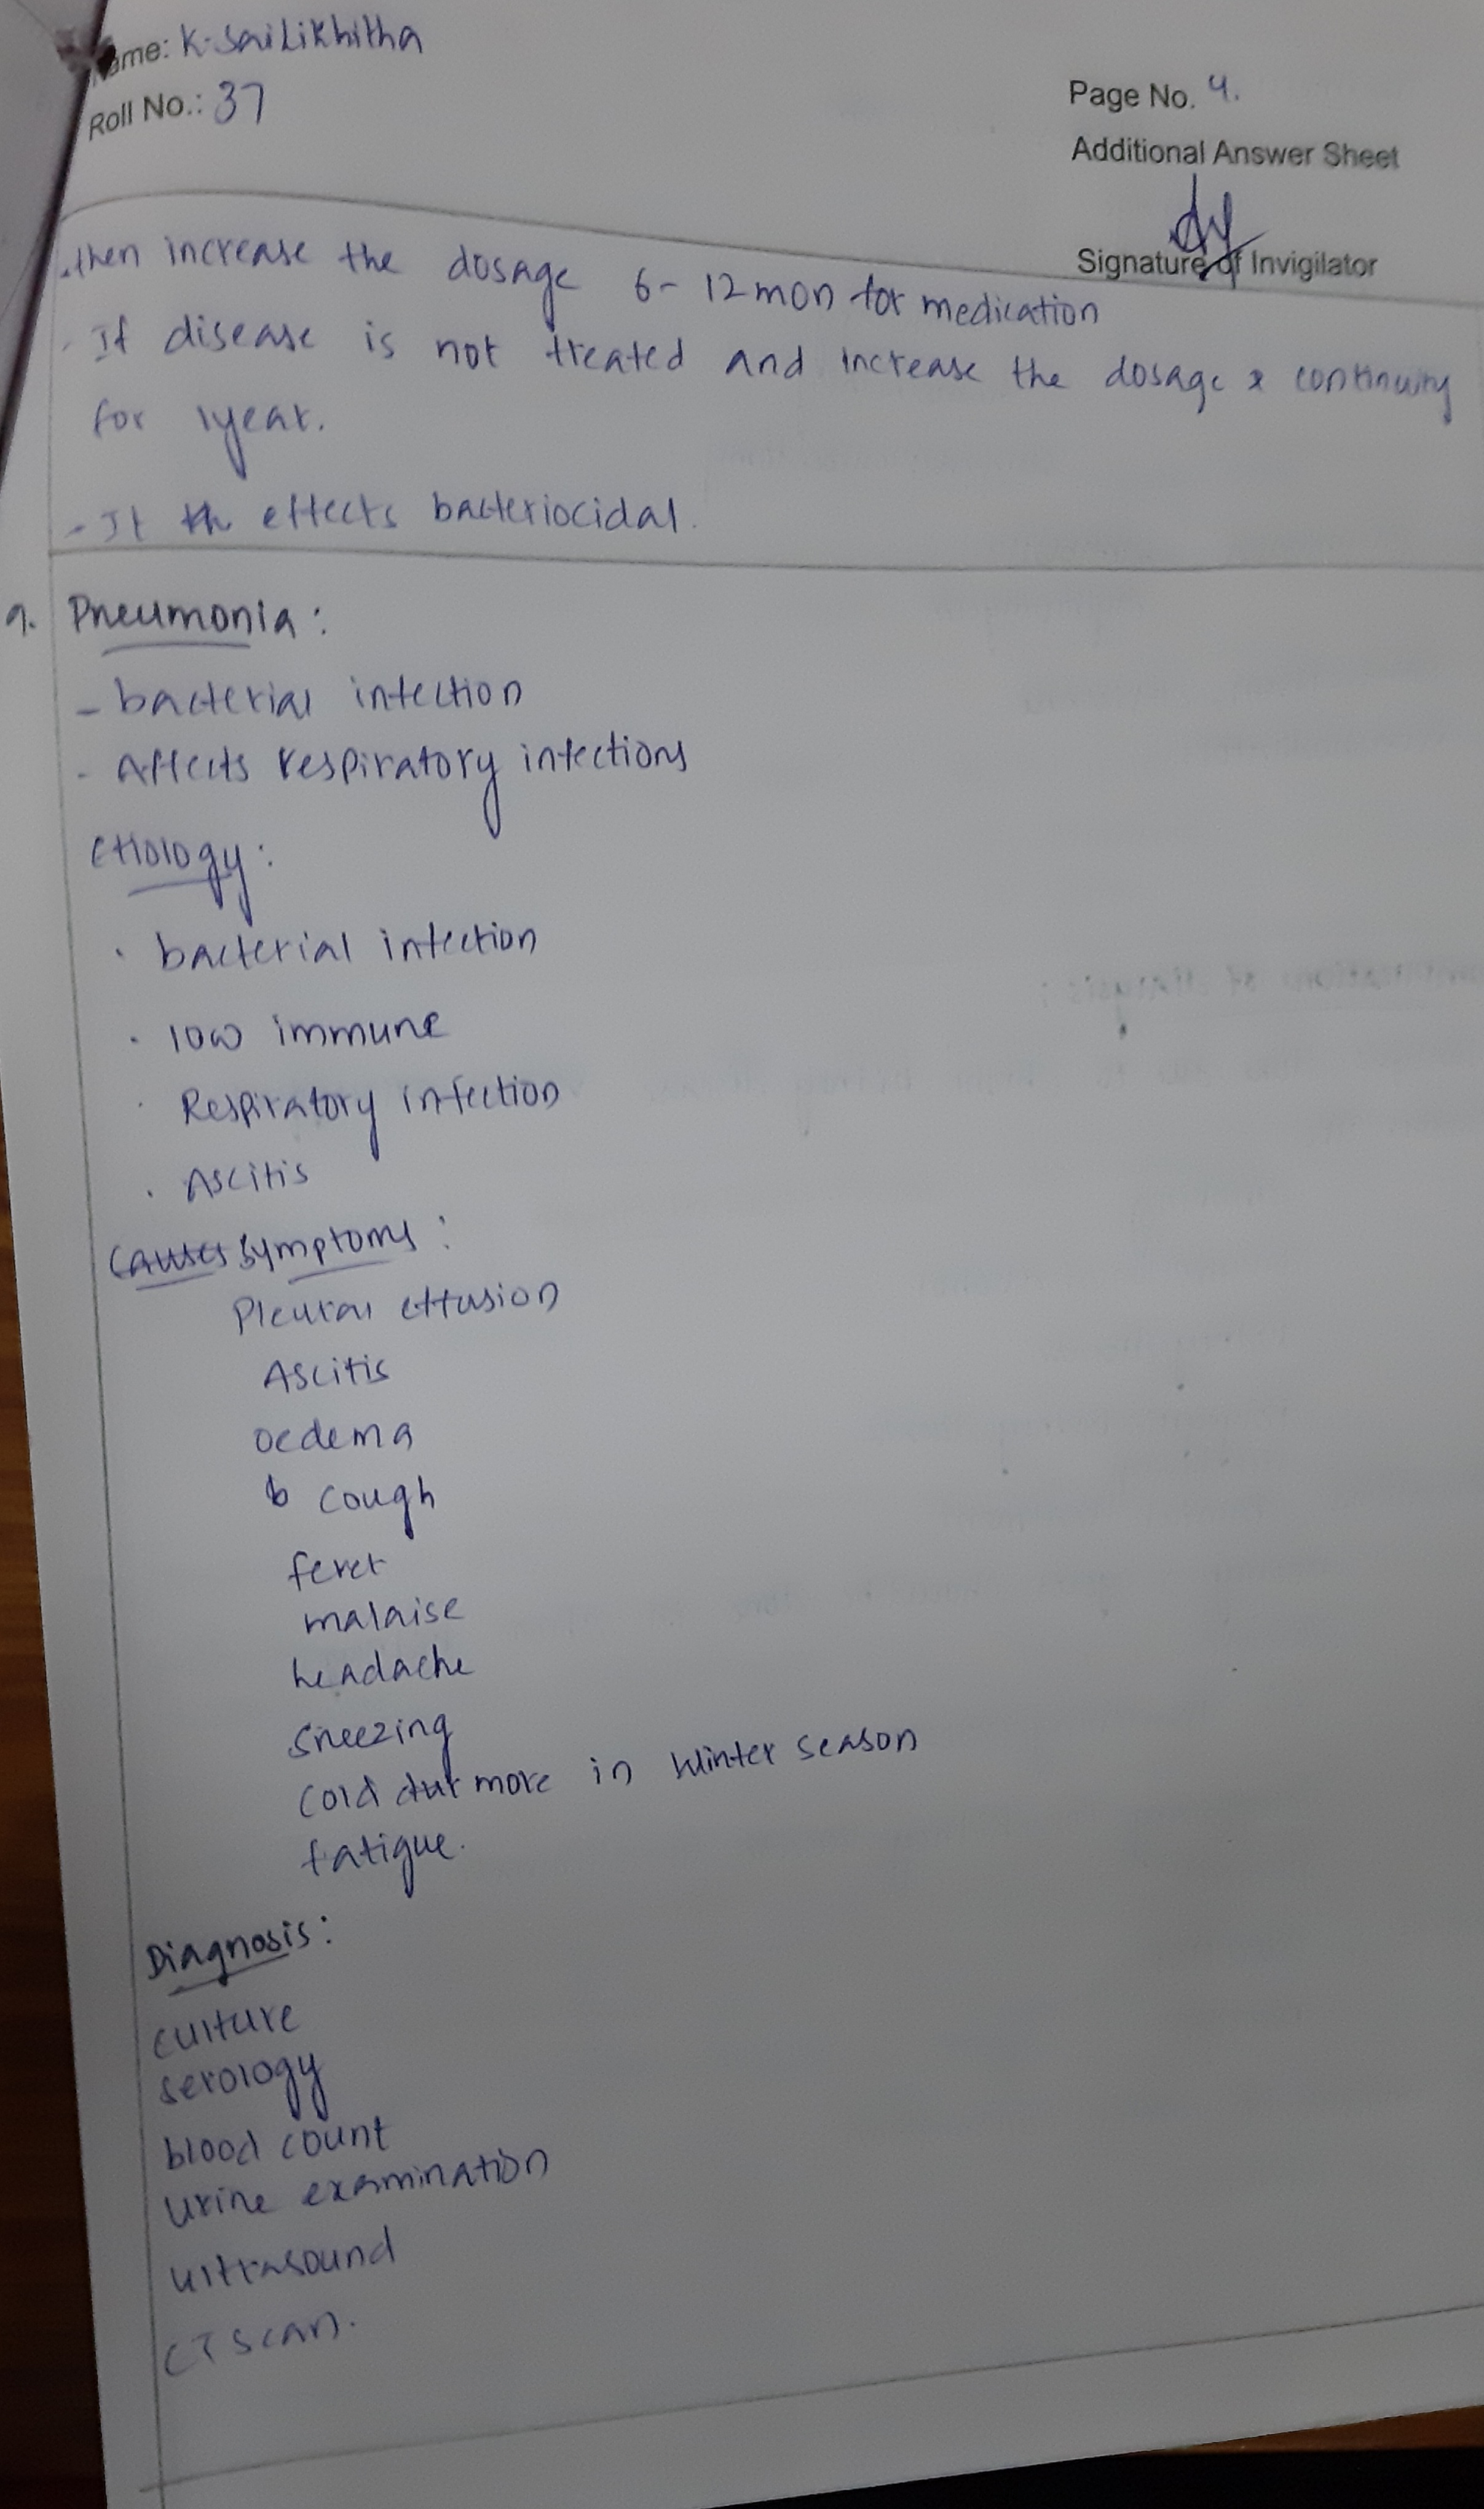 Name: K. Sai Likhitha
Roll No.: 37
Page No. 4.
Additional Answer Sheet
Signature of Invigilator
.then increase the dosage 6- 12 mon for medication
- If disease is not treated and increase the dosage & continuing
for 1year.
- It effects bacteriocidal.
9. Pneumonia:
- bacterial infection
- Affects respiratory infections
Etiology:
· bacterial infection
· low immune
· Respiratory infection
· Ascitis
Causes Symptoms:
Pleural effusion
Ascitis
oedema
b cough
fever
malaise
headache
sneezing
cold more in winter season
fatigue.
Diagnosis:
culture
serology
blood count
urine examination
ultrasound
CT scan.